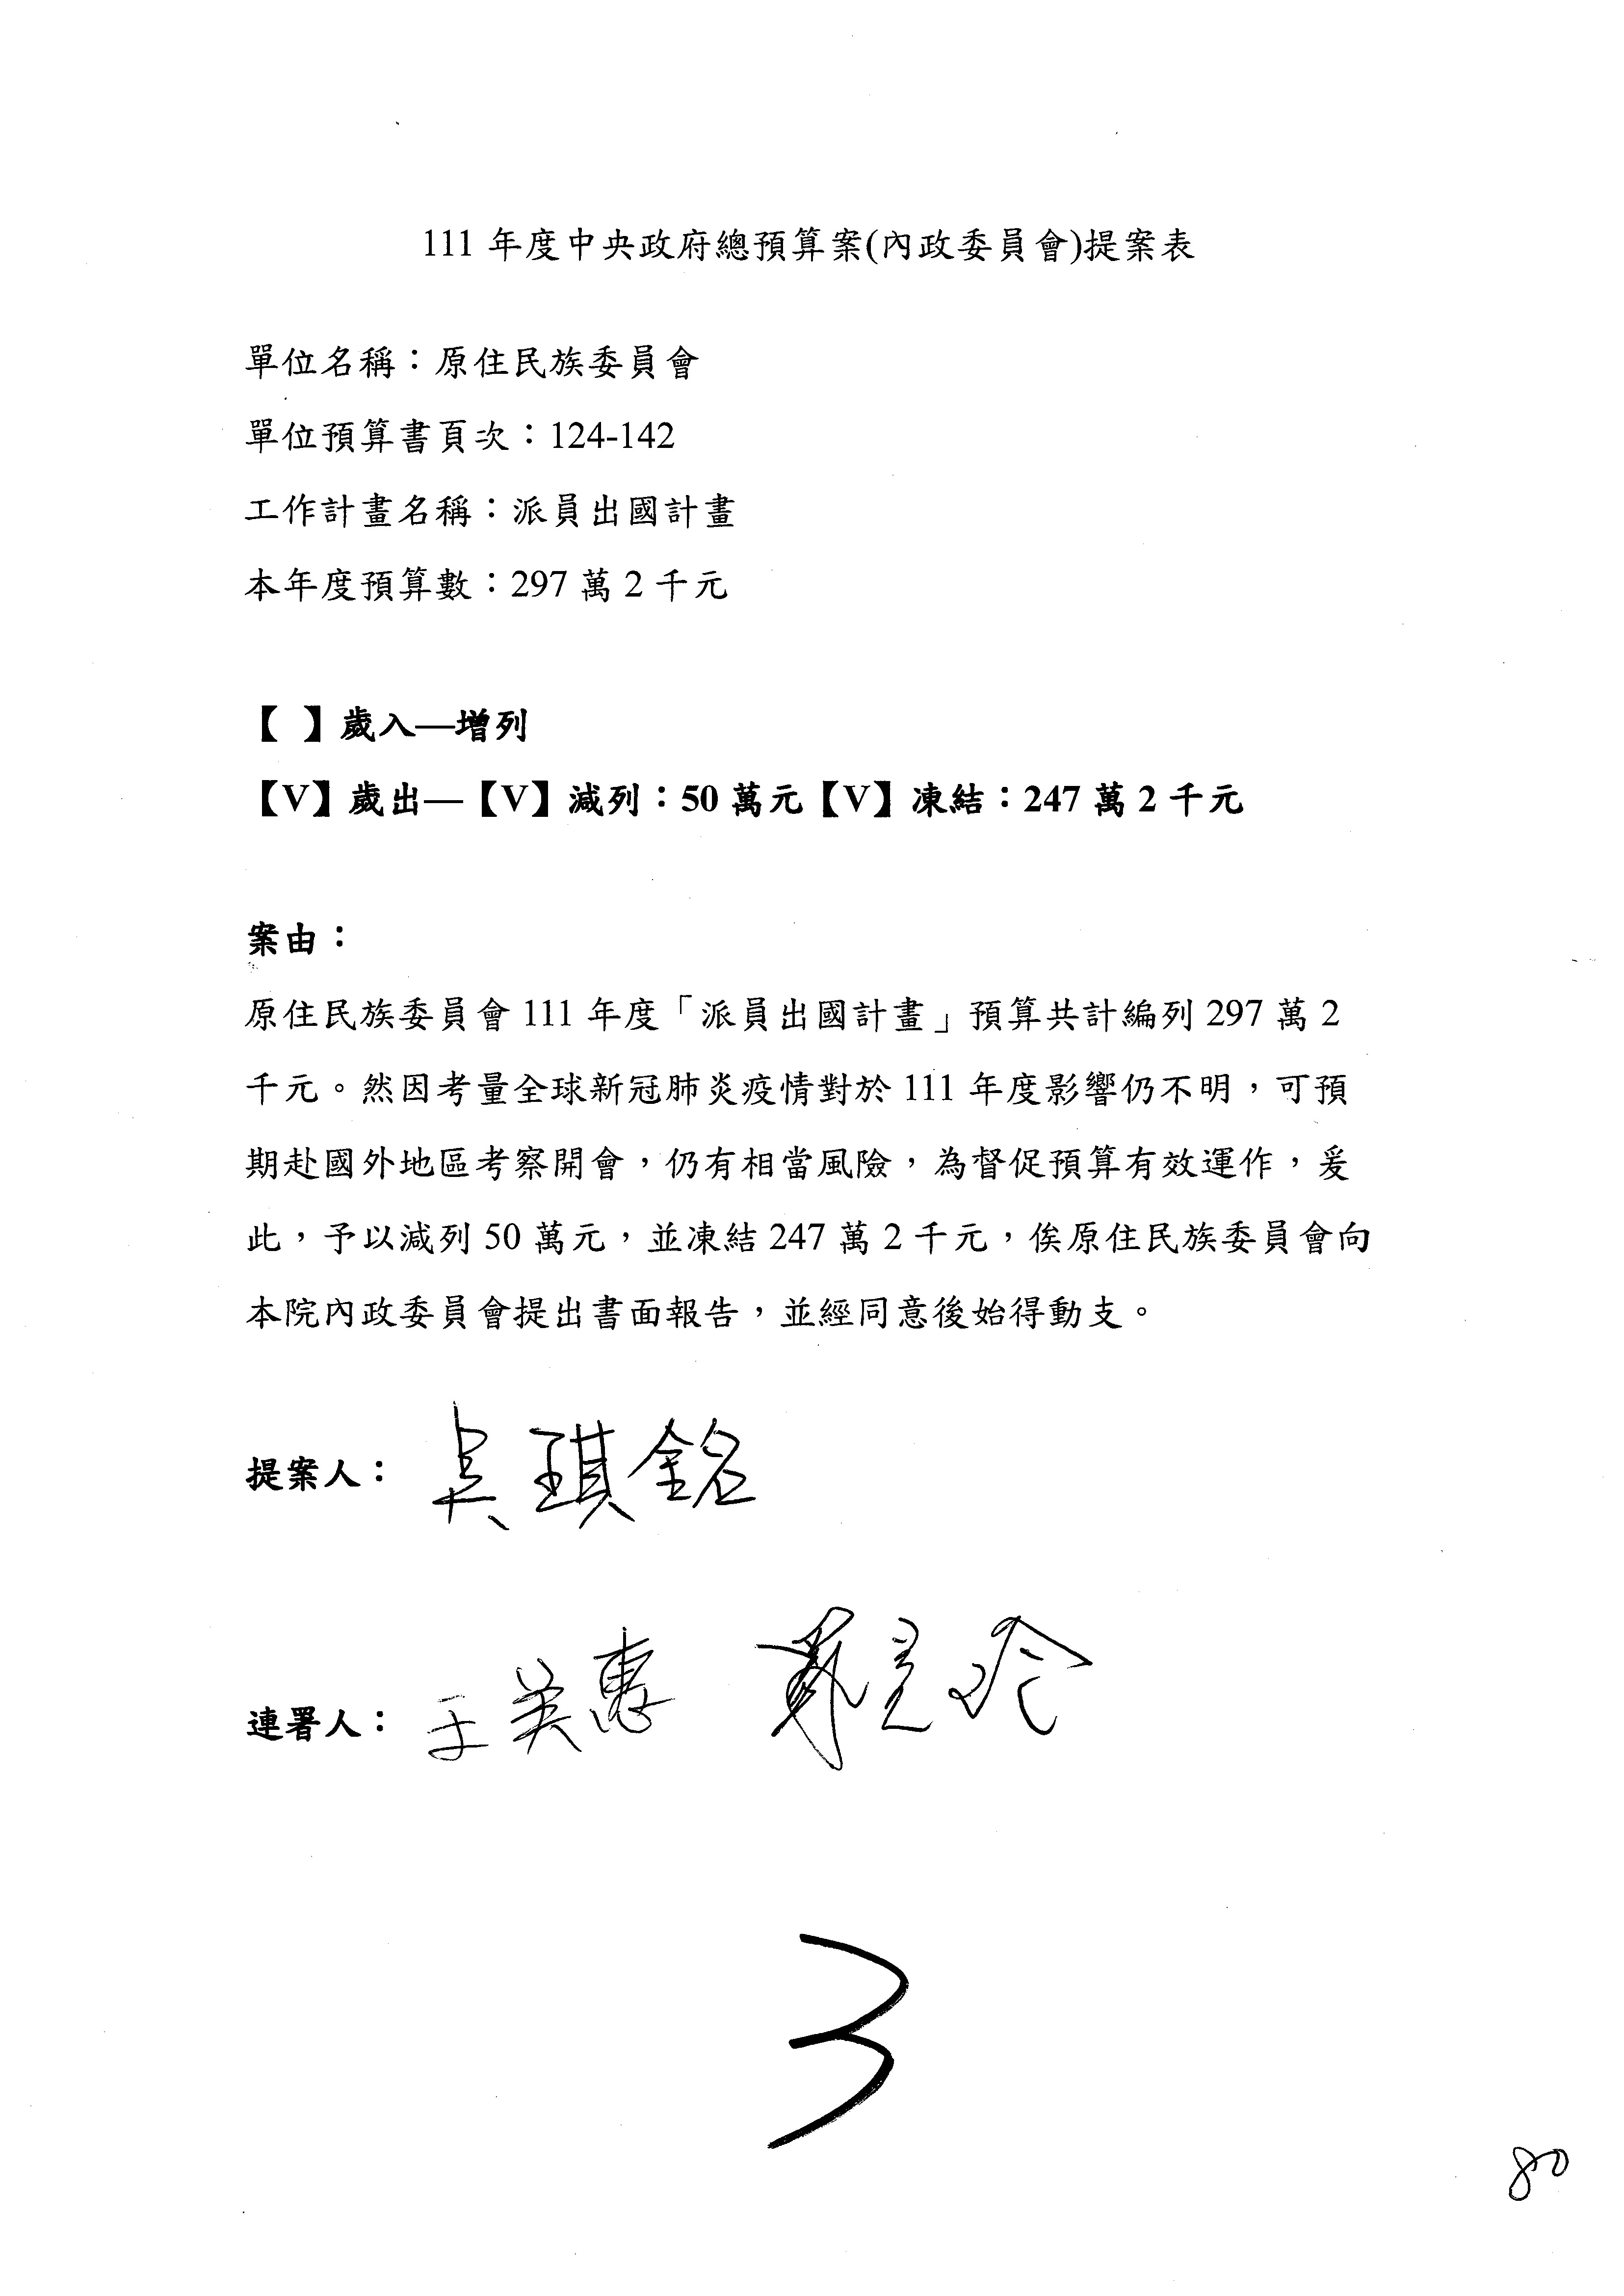 111 年度中央政府總預算案(內政委員會)提案表
單位名稱：原住民族委員會
單位預算書頁次：124-142
工作計畫名稱：派員出國計畫
本年度預算數：297 萬 2 千元
【 】歲入—增列
【V】歲出—【V】減列：50 萬元【V】凍結：247 萬 2 千元
案由：
原住民族委員會 111 年度「派員出國計畫」預算共計編列 297 萬 2
千元。然因考量全球新冠肺炎疫情對於 111 年度影響仍不明，可預
期赴國外地區考察開會，仍有相當風險，為督促預算有效運作，爰
此，予以減列 50 萬元，並凍結 247 萬 2 千元，俟原住民族委員會向
本院內政委員會提出書面報告，並經同意後始得動支。
提案人： 吳琪銘
連署人： 王美惠
3
80